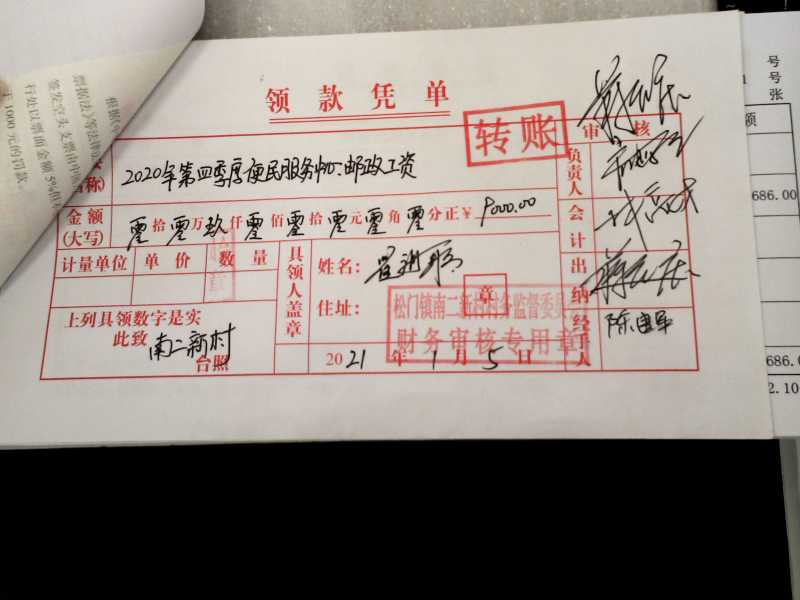 领款凭单
转账
审核
名称)
2020年第四季度便民服务中心邮政工资
金额
(大写)
零拾零万玖仟零佰零拾零元零角零分正¥9000.00
计量单位 单价 数量
具领人盖章
姓名:
住址:
章
上列具领数字是实
此致
南二新村
台照
2021年1月5日
松门镇南二新村村务监督委员
财务审核专用章
负责人
会计
出纳
经手人
根据《
票据法》
签发空头支票由中
行处以票面金额5%但
于1000元的罚款。
号
号
张
额
686.00
686.00
2.10